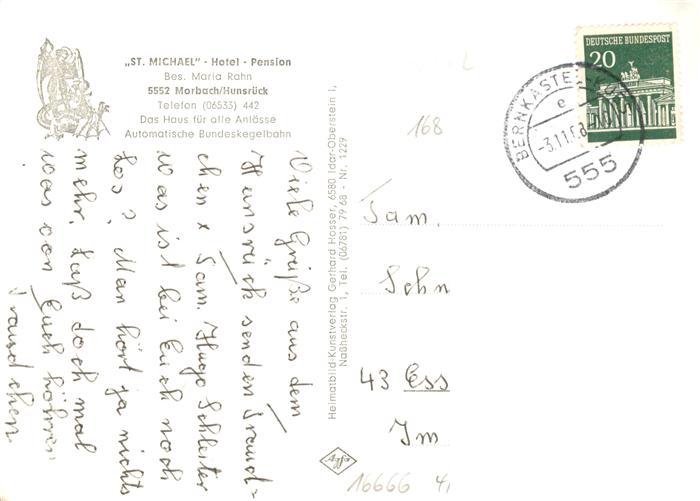 „ST. MICHAEL" - Hotel - Pension
Bes. Maria Rahn
5552 Morbach/Hunsrück
Telefon (06533) 442
Das Haus für alle Anlässe
Automatische Bundeskegelbahn
Viele Grüße aus dem
Hunsrück senden Traud-
chen + Fam. Hugo Schleiter
Was ist bei Euch noch
Los? Man hört ja nichts
mehr. Laß doch mal
was von Euch hören
Traudchen
Heimatbild-Kunstverlag Gerhard Hosser, 6580 Idar-Oberstein I,
Naßheckstr. 1, Tel. (06781) 79 68 - Nr. 1229
Agfa
168
DEUTSCHE BUNDESPOST
20
BERNKASTEL-KUES
e
-3.11.68
555
Fam.
Sohn
43 Ess
Im
16666